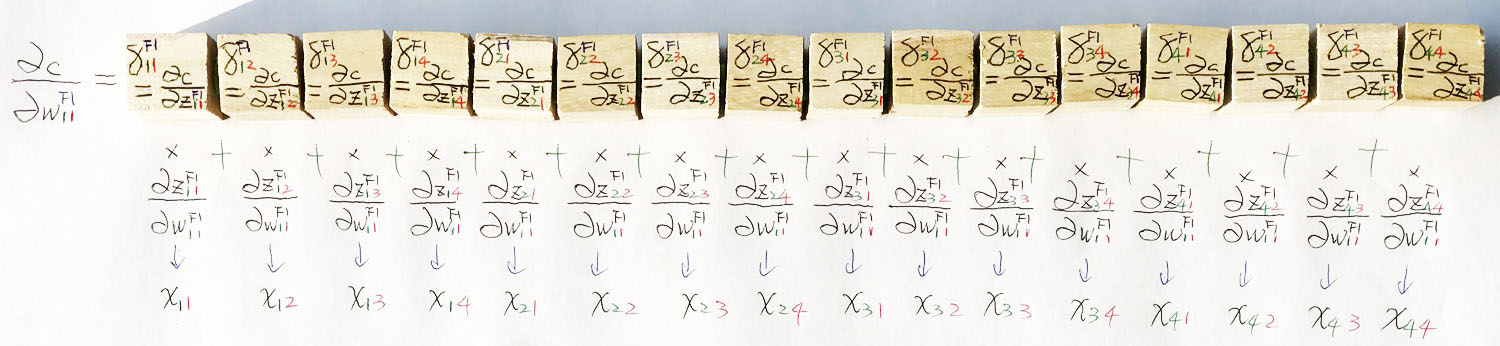 ∂c/∂w₁₁^F1 =
δ₁₁^F1 δ₁₂^F1 δ₁₃^F1 δ₁₄^F1 δ₂₁^F1 δ₂₂^F1 δ₂₃^F1 δ₂₄^F1 δ₃₁^F1 δ₃₂^F1 δ₃₃^F1 δ₃₄^F1 δ₄₁^F1 δ₄₂^F1 δ₄₃^F1 δ₄₄^F1
=∂c/∂z₁₁^F1 =∂c/∂z₁₂^F1 =∂c/∂z₁₃^F1 =∂c/∂z₁₄^F1 =∂c/∂z₂₁^F1 =∂c/∂z₂₂^F1 =∂c/∂z₂₃^F1 =∂c/∂z₂₄^F1 =∂c/∂z₃₁^F1 =∂c/∂z₃₂^F1 =∂c/∂z₃₃^F1 =∂c/∂z₃₄^F1 =∂c/∂z₄₁^F1 =∂c/∂z₄₂^F1 =∂c/∂z₄₃^F1 =∂c/∂z₄₄^F1
× + × + × + × + × + × + × + × + × + × + × + × + × + × + × + ×
∂z₁₁^F1/∂w₁₁^F1 ∂z₁₂^F1/∂w₁₁^F1 ∂z₁₃^F1/∂w₁₁^F1 ∂z₁₄^F1/∂w₁₁^F1 ∂z₂₁^F1/∂w₁₁^F1 ∂z₂₂^F1/∂w₁₁^F1 ∂z₂₃^F1/∂w₁₁^F1 ∂z₂₄^F1/∂w₁₁^F1 ∂z₃₁^F1/∂w₁₁^F1 ∂z₃₂^F1/∂w₁₁^F1 ∂z₃₃^F1/∂w₁₁^F1 ∂z₃₄^F1/∂w₁₁^F1 ∂z₄₁^F1/∂w₁₁^F1 ∂z₄₂^F1/∂w₁₁^F1 ∂z₄₃^F1/∂w₁₁^F1 ∂z₄₄^F1/∂w₁₁^F1
↓ ↓ ↓ ↓ ↓ ↓ ↓ ↓ ↓ ↓ ↓ ↓ ↓ ↓ ↓ ↓
x₁₁ x₁₂ x₁₃ x₁₄ x₂₁ x₂₂ x₂₃ x₂₄ x₃₁ x₃₂ x₃₃ x₃₄ x₄₁ x₄₂ x₄₃ x₄₄